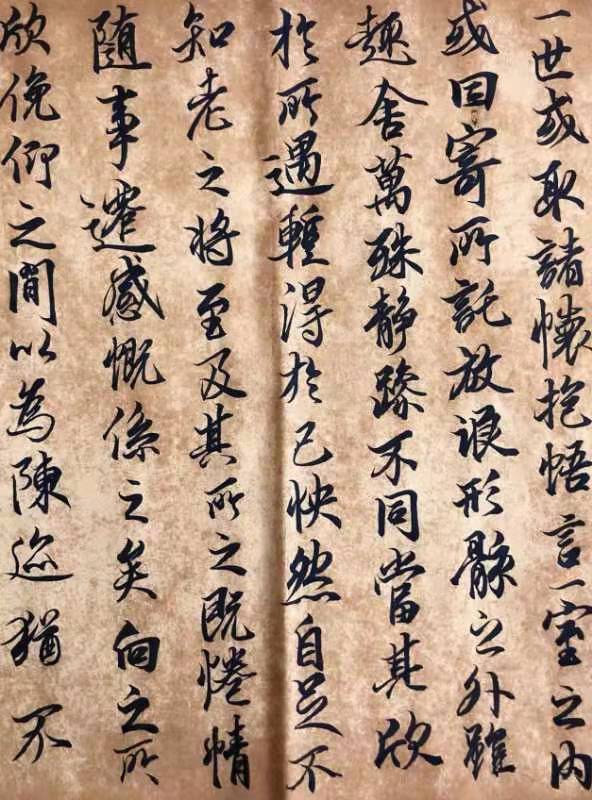 一世或取諸懷抱悟言一室之內
或曰寄所託放浪形骸之外雖
趣舍萬殊静躁不同當其欣
於所遇暫得於己怏然自足不
知老之將至及其所之既惓情
随事遷感慨係之矣向之所
欣俛仰之閒以為陳迹猶不